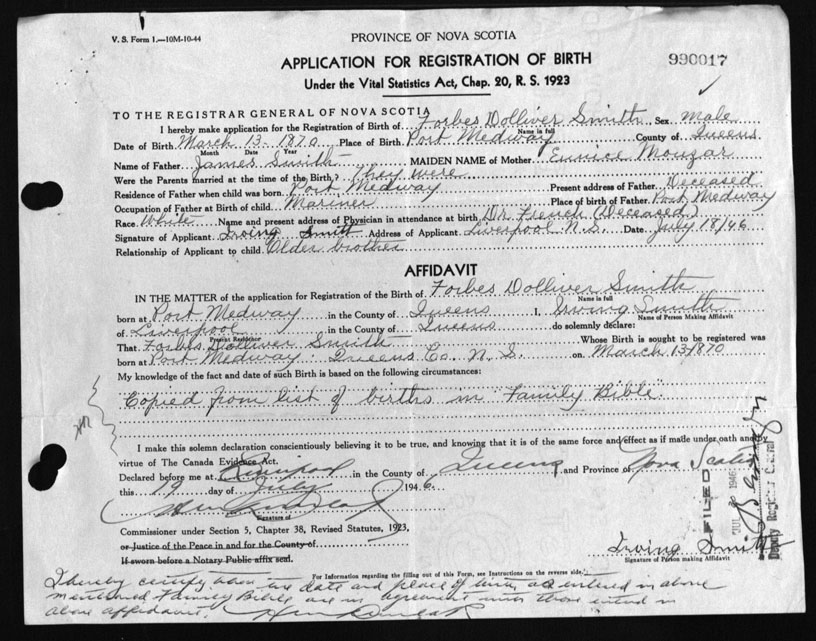 V. S. Form 1.—10M-10-44
PROVINCE OF NOVA SCOTIA
APPLICATION FOR REGISTRATION OF BIRTH
990017
Under the Vital Statistics Act, Chap. 20, R. S. 1923
TO THE REGISTRAR GENERAL OF NOVA SCOTIA
I hereby make application for the Registration of Birth of Forbes Dolliver Smith Sex Male
Name in full
Date of Birth March 13 1870 Place of Birth Port Medway County of Queens
Month Date Year
Name of Father James Smith MAIDEN NAME of Mother Eunice Mouzar
Were the Parents married at the time of the Birth? They were
Residence of Father when child was born Port Medway Present address of Father Deceased
Occupation of Father at Birth of child Mariner Place of birth of Father Port Medway
Race White Name and present address of Physician in attendance at birth Dr French (Deceased)
Signature of Applicant Irving Smith Address of Applicant Liverpool N.S. Date July 18/46
Relationship of Applicant to child Older brother
AFFIDAVIT
IN THE MATTER of the application for Registration of the Birth of Forbes Dolliver Smith
Name in full
born at Port Medway in the County of Queens I, Irving Smith
Name of Person Making Affidavit
of Liverpool in the County of Queens do solemnly declare:
Present Residence
That Forbes Dolliver Smith Whose Birth is sought to be registered was
born at Port Medway Queens Co. N. S. on March 13/1870
My knowledge of the fact and date of such Birth is based on the following circumstances:
Copied from list of births in "Family Bible".
I make this solemn declaration conscientiously believing it to be true, and knowing that it is of the same force and effect as if made under oath and by
virtue of The Canada Evidence Act.
Declared before me at Liverpool in the County of Queens and Province of Nova Scotia
this 19 day of July 1946.
Signature of
Commissioner under Section 5, Chapter 38, Revised Statutes, 1923,
or Justice of the Peace in and for the County of
If sworn before a Notary Public affix seal.
Irving Smith
Signature of Person making Affidavit
FILED
JUL 1946
Deputy Registrar General
For Information regarding the filling out of this Form, see Instructions on the reverse side.
I hereby certify that the date and place of birth, as entered in above
mentioned Family Bible are in agreement with those entered in
above affidavit.